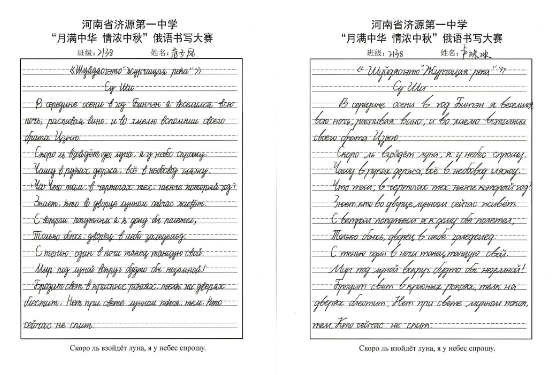 河南省济源第一中学
“月满中华 情浓中秋”俄语书写大赛
班级: 2138 姓名:
«Шуйдяогэто "Журчащая река"»
Су Ши
В середине осени в год Бинчэн я веселился всю
ночь, распивая вино, и во хмелю вспомнил своего
брата Цзыю.
Скоро ль взойдёт луна, я у небес спрошу.
Чашу в руках держа, всё в небосвод гляжу.
Что там, в чертогах тех, нынче который год?
Знает, кто во дворце лунном сейчас живёт.
С ветром попутным я к дому бы полетел,
Только боюсь, дворец в небе
С тенью один в ночи танец танцую свой.
Мир под луной вокруг будто бы неземной!
Бродит свет в красных тень на дверях
блестит. Нет при свете лунном тем, кто
сейчас не спит.
Скоро ль взойдёт луна, я у небес спрошу.
河南省济源第一中学
“月满中华 情浓中秋”俄语书写大赛
班级: 2138 姓名:
«Шуйдяогэто "Журчащая река"»
Су Ши
В середине осени в год Бинчэн я веселился
всю ночь, распивая вино, и во хмелю вспомнил
своего брата Цзыю.
Скоро ль взойдёт луна, я у небес спрошу.
Чашу в руках держа, всё в небосвод гляжу.
Что там, в чертогах тех, нынче который год?
Знает, кто во дворце лунном сейчас живёт.
С ветром попутным я к дому бы полетел,
Только боюсь, дворец в небе
С тенью один в ночи танец танцую свой.
Мир под луной вокруг будто бы неземной!
Бродит свет в красных тень на
дверях блестит. Нет при свете лунном
тем, кто сейчас не спит.
Скоро ль взойдёт луна, я у небес спрошу.